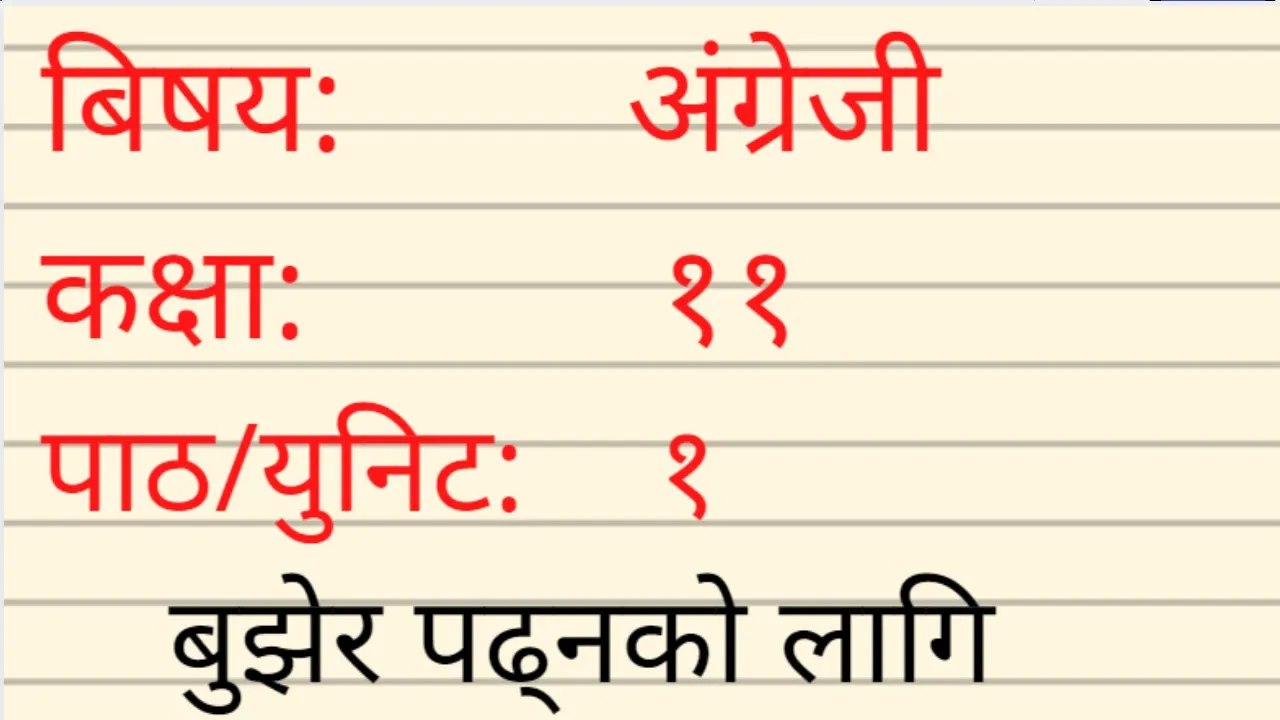 बिषय: अंग्रेजी
कक्षा: ११
पाठ/युनिट: १
बुझेर पढ्नको लागि